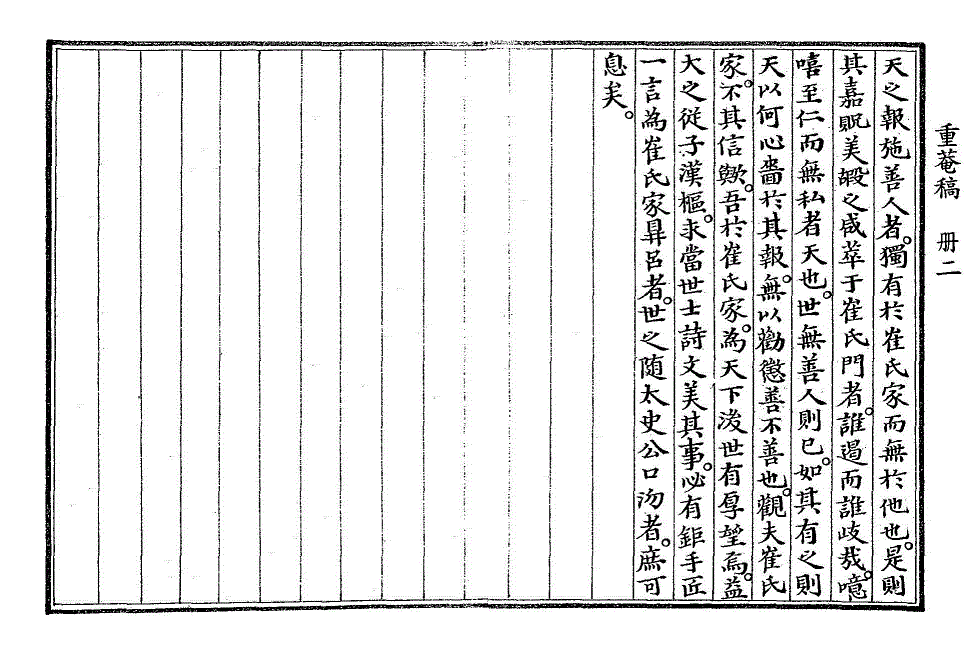 重菴稿 册二
天之報施善人者。獨有於崔氏家而無於他也。是則
其嘉貺美嘏之咸萃于崔氏門者。誰遏而誰歧哉。噫
嘻至仁而無私者天也。世無善人則已。如其有之則
天以何心嗇於其報。無以勸懲善不善也。觀夫崔氏
家。不其信歟。吾於崔氏家。為天下後世有厚望焉。益
大之從子漢樞。求當世士詩文美其事。必有鉅手匠
一言為崔氏家鼎呂者。世之隨太史公口沕者。庶可
息矣。